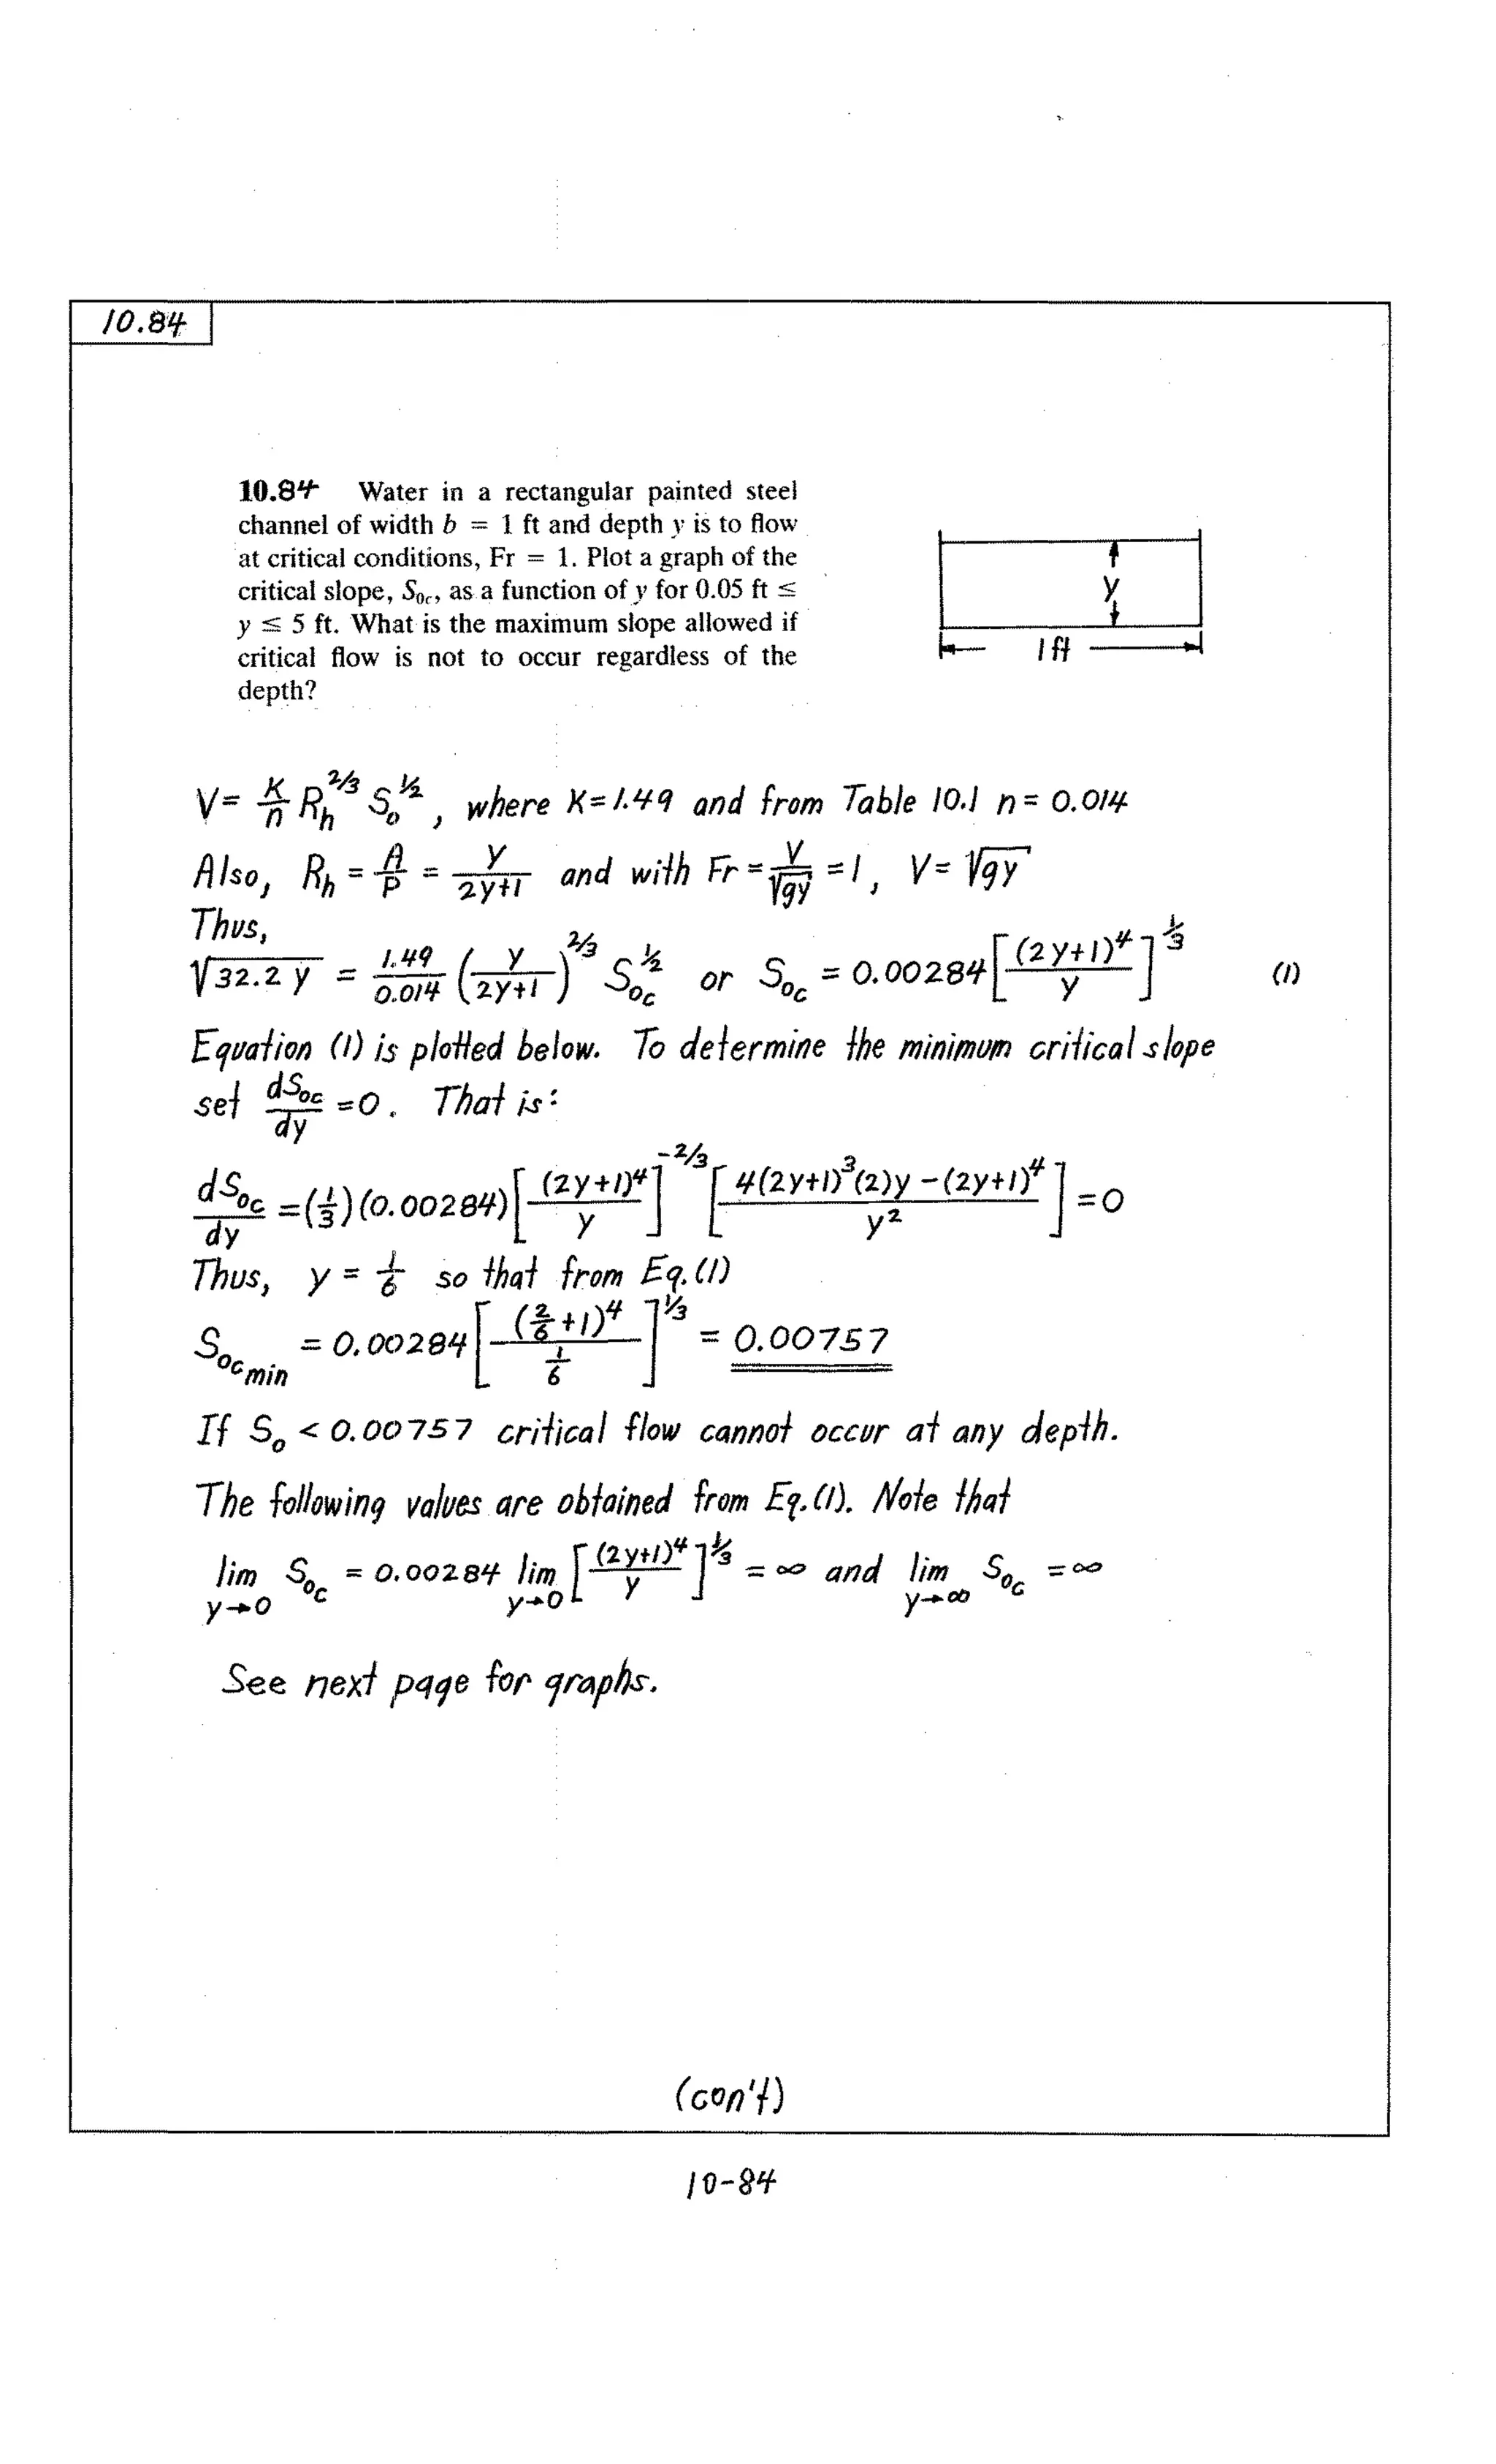 10.84
10.84 Water in a rectangular painted steel
channel of width b = 1 ft and depth y is to flow
at critical conditions, Fr = 1. Plot a graph of the
critical slope, S₀c, as a function of y for 0.05 ft ≤
y ≤ 5 ft. What is the maximum slope allowed if
critical flow is not to occur regardless of the
depth?
y
1 ft
V = K/n R_h^(2/3) S₀^(1/2) , where K = 1.49 and from Table 10.1 n = 0.014
Also, R_h = A/P = y/(2y+1) and with Fr = V/√(gy) = 1 , V = √(gy)
Thus,
√(32.2 y) = 1.49/0.014 (y/(2y+1))^(2/3) S₀c^(1/2) or S₀c = 0.00284 [(2y+1)^4/y]^(1/3) (1)
Equation (1) is plotted below. To determine the minimum critical slope
set dS₀c/dy = 0 . That is:
dS₀c/dy = (1/3)(0.00284) [(2y+1)^4/y]^(-2/3) [(4(2y+1)^3(2)y - (2y+1)^4)/y^2] = 0
Thus, y = 1/6 so that from Eq.(1)
S₀c min = 0.00284 [(2/6+1)^4/(1/6)]^(1/3) = 0.00757
If S₀ < 0.00757 critical flow cannot occur at any depth.
The following values are obtained from Eq.(1). Note that
lim y→0 S₀c = 0.00284 lim y→0 [(2y+1)^4/y]^(1/3) = ∞ and lim y→∞ S₀c = ∞
See next page for graphs.
(con't)
10-84